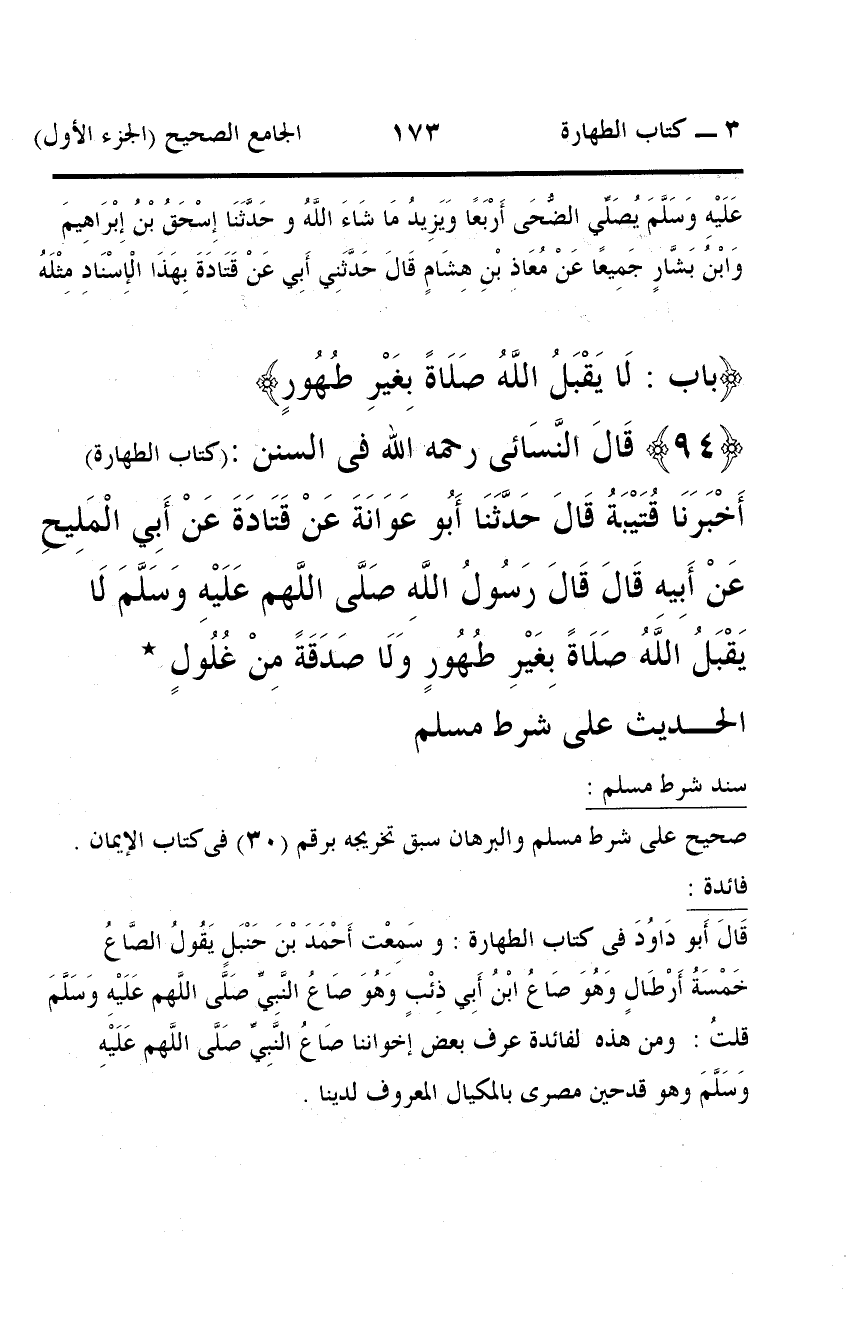 ٣ ــ كتاب الطهارة ١٧٣ الجامع الصحيح (الجزء الأول)
عَلَيْهِ وَسَلَّمَ يُصَلِّي الضُّحَى أَرْبَعًا وَيَزِيدُ مَا شَاءَ اللَّهُ و حَدَّثَنَا إِسْحَقُ بْنُ إِبْرَاهِيمَ
وَابْنُ بَشَّارٍ جَمِيعًا عَنْ مُعَاذِ بْنِ هِشَامٍ قَالَ حَدَّثَنِي أَبِي عَنْ قَتَادَةَ بِهَذَا الْإِسْنَادِ مِثْلَهُ
﴿باب : لَا يَقْبَلُ اللَّهُ صَلَاةً بِغَيْرِ طُهُورٍ﴾
﴿٩٤﴾ قَالَ النَّسَائى رحمه الله فى السنن :(كتاب الطهارة)
أَخْبَرَنَا قُتَيْبَةُ قَالَ حَدَّثَنَا أَبُو عَوَانَةَ عَنْ قَتَادَةَ عَنْ أَبِي الْمَلِيحِ
عَنْ أَبِيهِ قَالَ قَالَ رَسُولُ اللَّهِ صَلَّى اللَّهم عَلَيْهِ وَسَلَّمَ لَا
يَقْبَلُ اللَّهُ صَلَاةً بِغَيْرِ طُهُورٍ وَلَا صَدَقَةً مِنْ غُلُولٍ *
الحـــديث على شرط مسلم
سند شرط مسلم :
صحيح على شرط مسلم والبرهان سبق تخريجه برقم (٣٠) فى كتاب الإيمان .
فائدة :
قَالَ أَبو دَاوُدَ فى كتاب الطهارة : و سَمِعْت أَحْمَدَ بْنَ حَنْبَلٍ يَقُولُ الصَّاعُ
خَمْسَةُ أَرْطَالٍ وَهُوَ صَاعُ ابْنُ أَبِي ذِئْبٍ وَهُوَ صَاعُ النَّبِيِّ صَلَّى اللَّهم عَلَيْهِ وَسَلَّمَ
قلتُ : ومن هذه لفائدة عرف بعض إخواننا صَاعُ النَّبِيِّ صَلَّى اللَّهم عَلَيْهِ
وَسَلَّمَ وهو قدحين مصرى بالمكيال المعروف لدينا .